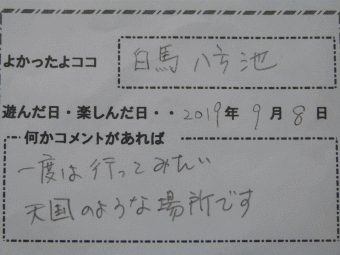 よかったよココ 白馬八方池
遊んだ日・楽しんだ日・・2019年9月8日
何かコメントがあれば
一度は行ってみたい
天国のような場所です